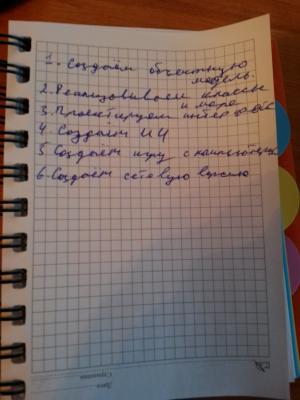 1. Создаём объектную
модель.
2. Реализовываем классы
и море
3. Проектируем интерфейс
4. Создаём ИИ
5. Создаём игру с компьютером
6. Создаём сетевую версию
Дата
Страница